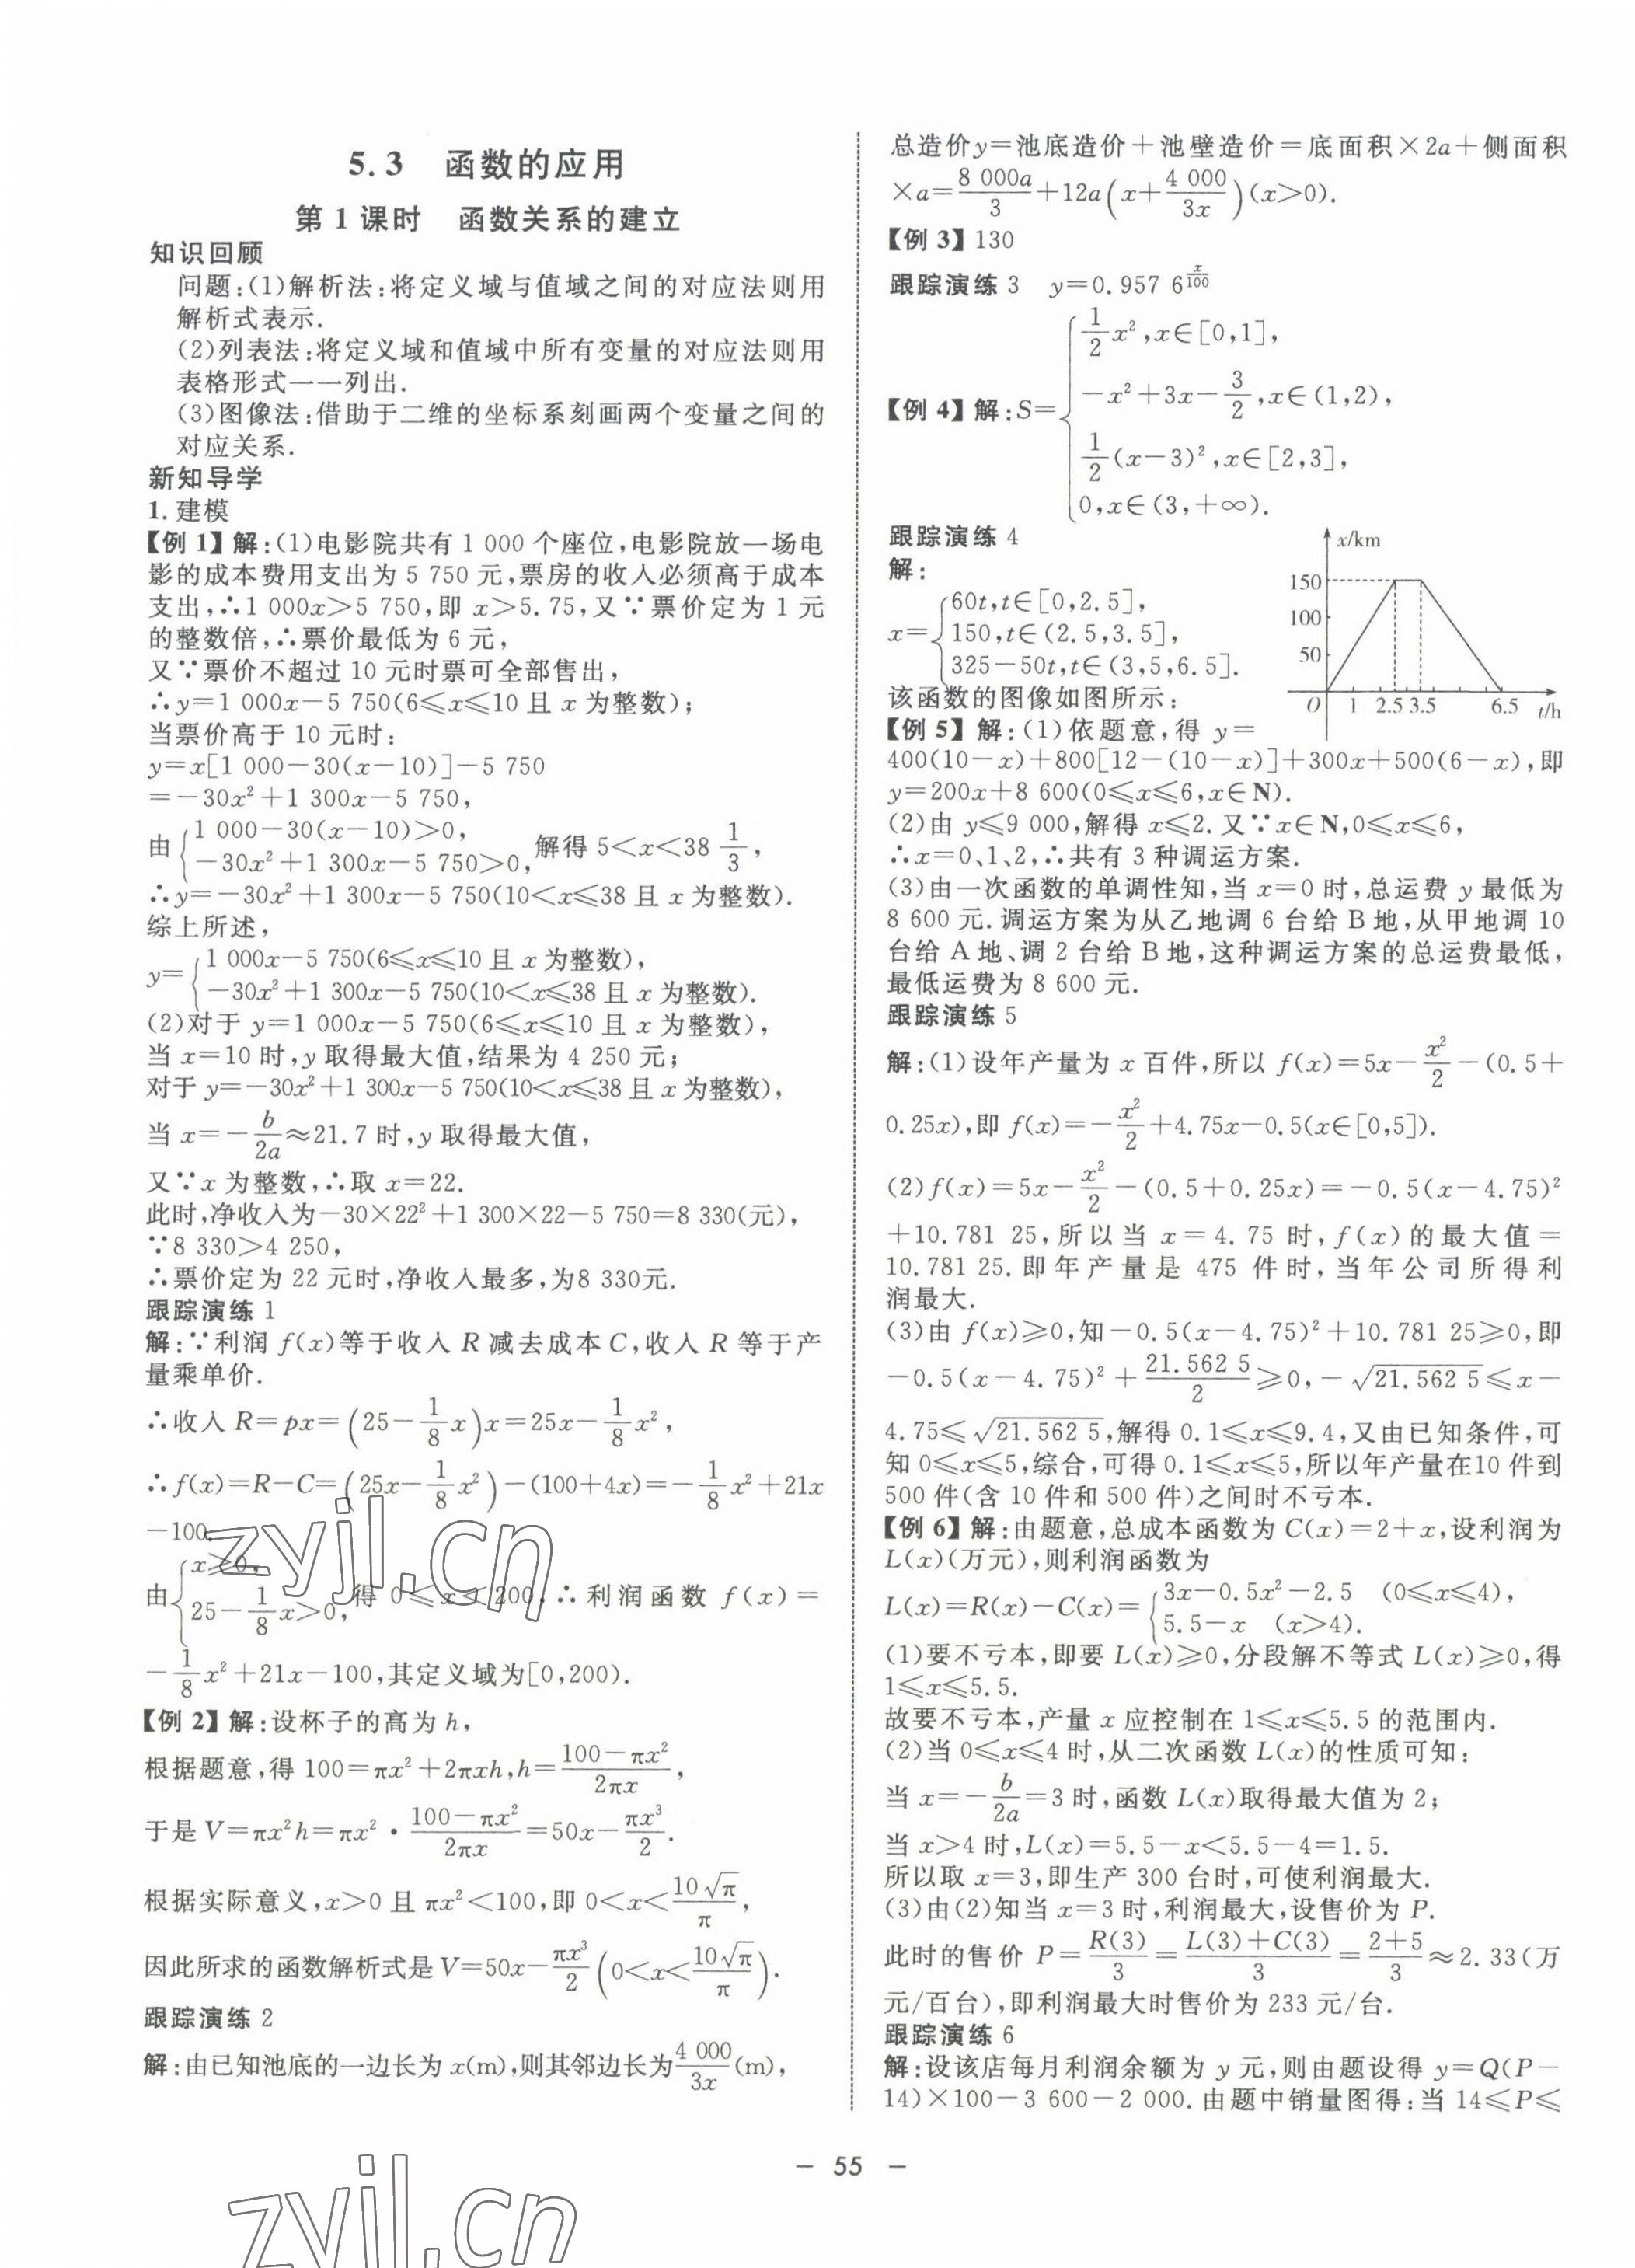 5.3 函数的应用
第1课时 函数关系的建立
知识回顾
问题:(1)解析法:将定义域与值域之间的对应法则用
解析式表示.
(2)列表法:将定义域和值域中所有变量的对应法则用
表格形式一一列出.
(3)图像法:借助于二维的坐标系刻画两个变量之间的
对应关系.
新知导学
1.建模
【例1】解:(1)电影院共有1 000个座位,电影院放一场电
影的成本费用支出为5 750元,票房的收入必须高于成本
支出,∴1 000x>5 750,即x>5.75,又∵票价定为1元
的整数倍,∴票价最低为6元,
又∵票价不超过10元时票可全部售出,
∴y=1 000x-5 750(6≤x≤10且x为整数);
当票价高于10元时:
y=x[1 000-30(x-10)]-5 750
=-30x²+1 300x-5 750,
由{1 000-30(x-10)>0, -30x²+1 300x-5 750>0, 解得5<x<38 1/3,
∴y=-30x²+1 300x-5 750(10<x≤38且x为整数).
综上所述,
y={1 000x-5 750(6≤x≤10且x为整数),
-30x²+1 300x-5 750(10<x≤38且x为整数).
(2)对于y=1 000x-5 750(6≤x≤10且x为整数),
当x=10时,y取得最大值,结果为4 250元;
对于y=-30x²+1 300x-5 750(10<x≤38且x为整数),
当x=-b/2a≈21.7时,y取得最大值,
又∵x为整数,∴取x=22.
此时,净收入为-30×22²+1 300×22-5 750=8 330(元),
∵8 330>4 250,
∴票价定为22元时,净收入最多,为8 330元.
跟踪演练1
解:∵利润f(x)等于收入R减去成本C,收入R等于产
量乘单价.
∴收入R=px=(25-1/8 x)x=25x-1/8 x²,
∴f(x)=R-C=(25x-1/8 x²)-(100+4x)=-1/8 x²+21x
-100.
由{x≥0, 25-1/8 x>0, 得0≤x<200,∴利润函数f(x)=
-1/8 x²+21x-100,其定义域为[0,200).
【例2】解:设杯子的高为h,
根据题意,得100=πx²+2πxh,h=(100-πx²)/2πx,
于是V=πx²h=πx²·(100-πx²)/2πx=50x-πx³/2.
根据实际意义,x>0且πx²<100,即0<x<10√π/π,
因此所求的函数解析式是V=50x-πx³/2(0<x<10√π/π).
跟踪演练2
解:由已知池底的一边长为x(m),则其邻边长为4 000/3x(m),
总造价y=池底造价+池壁造价=底面积×2a+侧面积
×a=8 000a/3+12a(x+4 000/3x)(x>0).
【例3】130
跟踪演练3 y=0.957 6^(x/100)
【例4】解:S={1/2 x²,x∈[0,1],
-x²+3x-3/2,x∈(1,2),
1/2(x-3)²,x∈[2,3],
0,x∈(3,+∞).
跟踪演练4
解:
x={60t,t∈[0,2.5],
150,t∈(2.5,3.5],
325-50t,t∈(3,5,6.5].
该函数的图像如图所示:
x/km
150
100
50
O 1 2.5 3.5 6.5 t/h
【例5】解:(1)依题意,得y=
400(10-x)+800[12-(10-x)]+300x+500(6-x),即
y=200x+8 600(0≤x≤6,x∈N).
(2)由y≤9 000,解得x≤2.又∵x∈N,0≤x≤6,
∴x=0、1、2,∴共有3种调运方案.
(3)由一次函数的单调性知,当x=0时,总运费y最低为
8 600元.调运方案为从乙地调6台给B地,从甲地调10
台给A地、调2台给B地,这种调运方案的总运费最低,
最低运费为8 600元.
跟踪演练5
解:(1)设年产量为x百件,所以f(x)=5x-x²/2-(0.5+
0.25x),即f(x)=-x²/2+4.75x-0.5(x∈[0,5]).
(2)f(x)=5x-x²/2-(0.5+0.25x)=-0.5(x-4.75)²
+10.781 25,所以当x=4.75时,f(x)的最大值=
10.781 25.即年产量是475件时,当年公司所得利
润最大.
(3)由f(x)≥0,知-0.5(x-4.75)²+10.781 25≥0,即
-0.5(x-4.75)²+21.562 5/2≥0,-√21.562 5≤x-
4.75≤√21.562 5,解得0.1≤x≤9.4,又由已知条件,可
知0≤x≤5,综合,可得0.1≤x≤5,所以年产量在10件到
500件(含10件和500件)之间时不亏本.
【例6】解:由题意,总成本函数为C(x)=2+x,设利润为
L(x)(万元),则利润函数为
L(x)=R(x)-C(x)={3x-0.5x²-2.5 (0≤x≤4),
5.5-x (x>4).
(1)要不亏本,即要L(x)≥0,分段解不等式L(x)≥0,得
1≤x≤5.5.
故要不亏本,产量x应控制在1≤x≤5.5的范围内.
(2)当0≤x≤4时,从二次函数L(x)的性质可知:
当x=-b/2a=3时,函数L(x)取得最大值为2;
当x>4时,L(x)=5.5-x<5.5-4=1.5.
所以取x=3,即生产300台时,可使利润最大.
(3)由(2)知当x=3时,利润最大,设售价为P.
此时的售价P=R(3)/3=(L(3)+C(3))/3=(2+5)/3≈2.33(万
元/百台),即利润最大时售价为233元/台.
跟踪演练6
解:设该店每月利润余额为y元,则由题设得y=Q(P-
14)×100-3 600-2 000.由题中销量图得:当14≤P≤
- 55 -
zyjl.cn
zyjl.cn